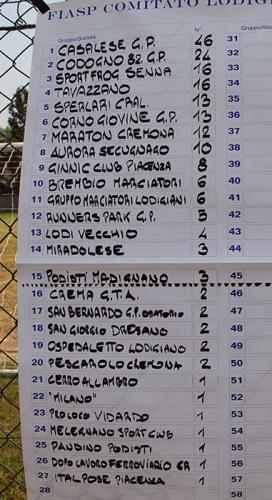 FIASP COMITATO LODIGI
Gruppo/Società N° Gruppo/Società
1 CASALESE G.P. 46 31
2 CODOGNO 82 G.P. 24 32
3 SPORTFROG SENNA 16 33
4 TAVAZZANO 16 34
5 SPERLARI CRAL. 13 35
6 CORNO GIOVINE G.P. 13 36
7 MARATON CREMONA 12 37
8 AURORA SECUGNAGO 10 38
9 GINNIC CLUB PIACENZA 8 39
10 BREMBIO MARCIATORI 6 40
11 GRUPPO MARCIATORI LODIGIANI 6 41
12 RUNNERS PARK G.P. 5 42
13 LODI VECCHIO 4 43
14 MIRADOLESE 3 44
15 PODISTI MADIGNANO 3 45
16 CREMA G.T.A. 2 46
17 SAN BERNARDO G.P. ORATORIO 2 47
18 SAN GIORGIO DRESANO 2 48
19 OSPEDALETTO LODIGIANO 2 49
20 PESCAROLO CREMONA 2 50
21 CERRO ALLAMBRO 1 51
22 "MILANO" 1 52
23 PROLOCO VIDARDO 1 53
24 MELEGNANO SPORT CLUB 1 54
25 PANDINO PODISTI 1 55
26 DOPO LAVORO FERROVIARIO CR 1 56
27 ITALPOSE PIACENZA 1 57
28 58